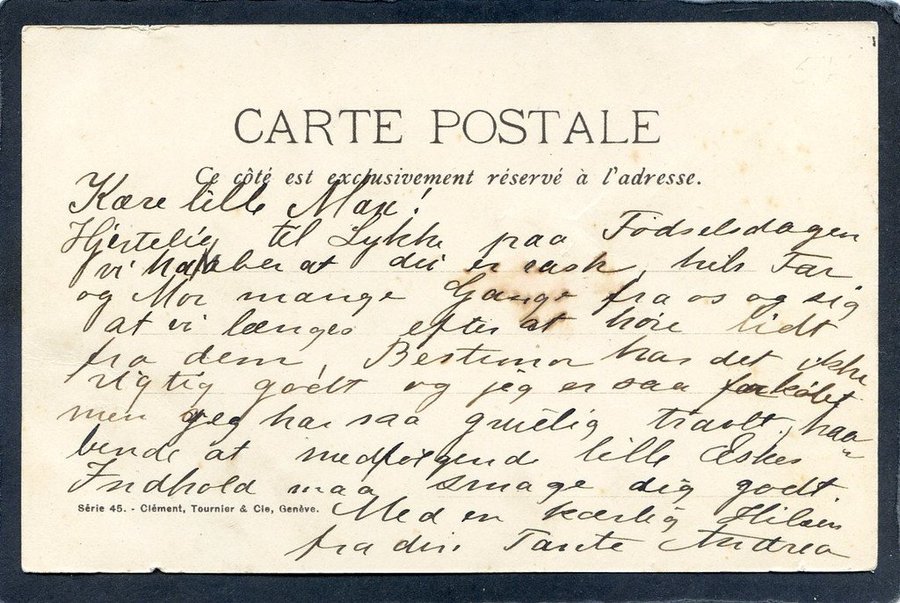 CARTE POSTALE
Ce côté est exclusivement réservé à l'adresse.
Kære lille Max!
Hjertelig til Lykke paa Födselsdagen
vi haaber at du er rask, hils Far
og Mor mange Gange fra os og sig
at vi længes efter at höre lidt
fra dem, Bestemor har det ikke
rigtig godt og jeg er saa forkölet
men jeg har saa gruelig travlt, haa-
bende at medfølgende lille Æskes
Indhold maa smage dig godt.
Série 45. - Clément, Tournier & Cie, Genève.
Med en kærlig Hilsen
fra din Tante Andrea